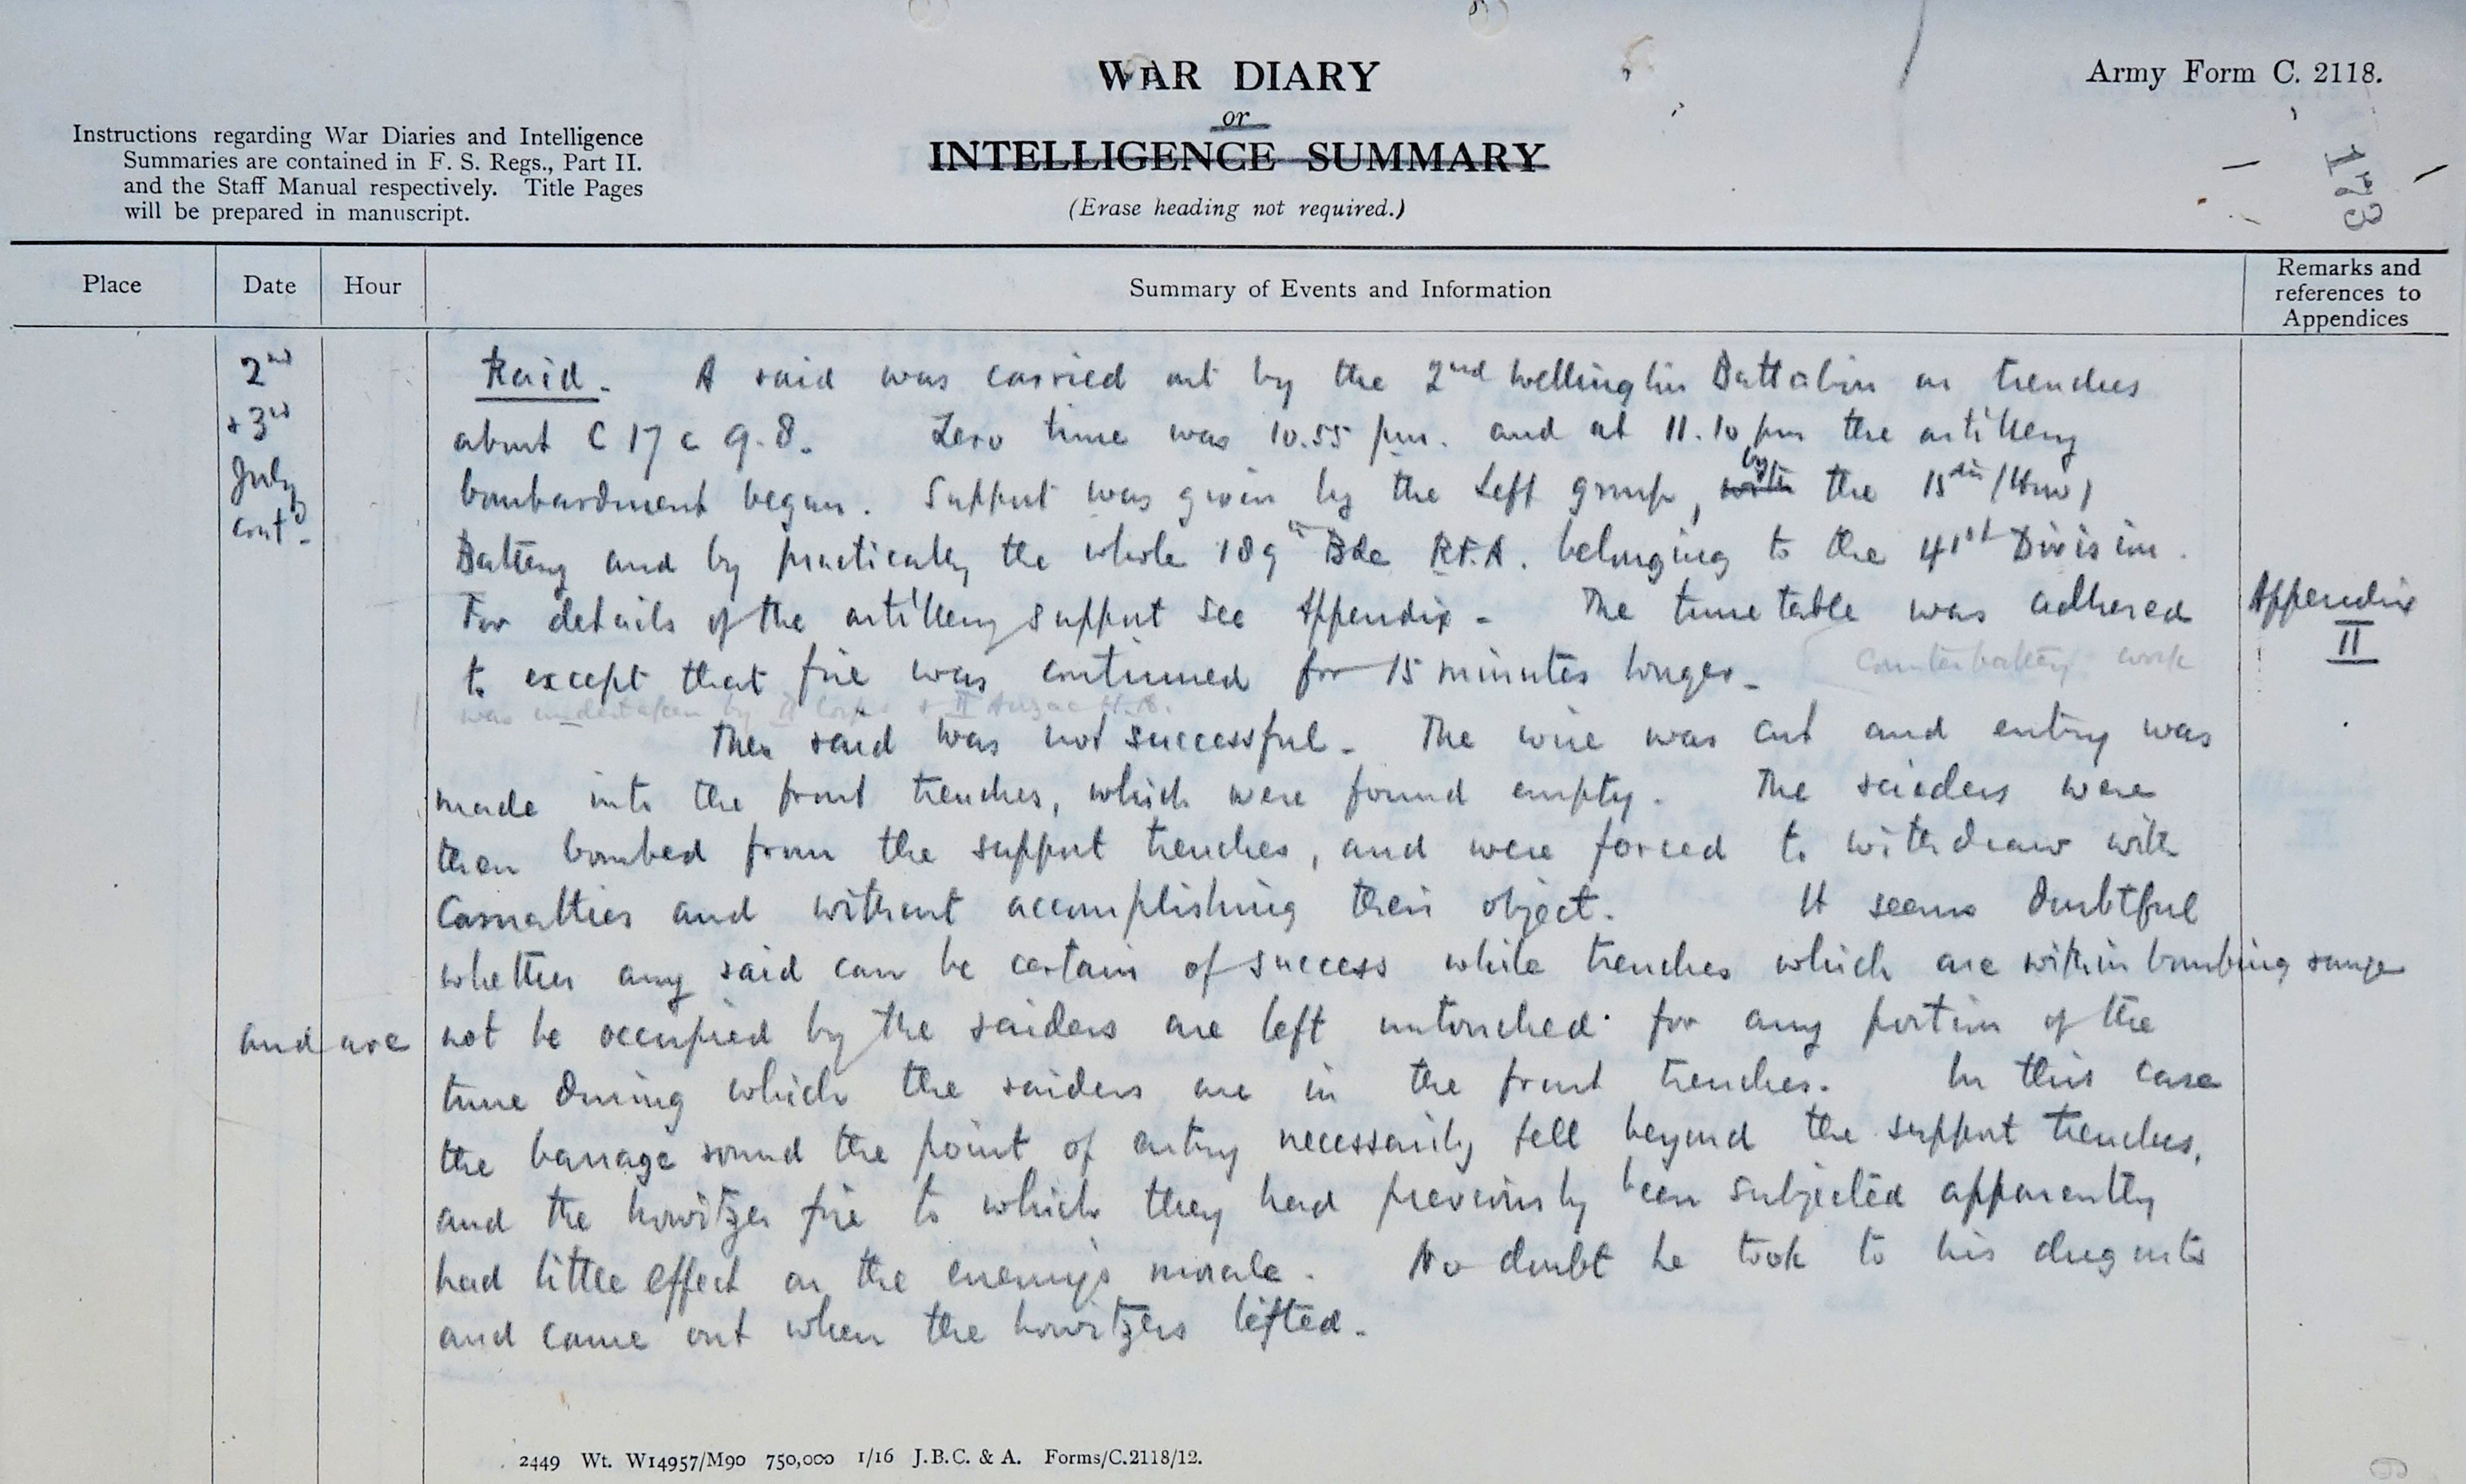 WAR DIARY
or
INTELLIGENCE SUMMARY
(Erase heading not required.)
Army Form C. 2118.
173
Instructions regarding War Diaries and Intelligence
Summaries are contained in F. S. Regs., Part II.
and the Staff Manual respectively. Title Pages
will be prepared in manuscript.
Place
Date
Hour
Summary of Events and Information
Remarks and
references to
Appendices
2nd
+ 3rd
July
contd.
Raid. A raid was carried out by the 2nd Wellington Battalion on trenches
about C 17 c 9.8. Zero time was 10.55 pm. and at 11.10 pm the artillery
bombardment began. Support was given by the Left group, with by the 15th (How)
Battery and by practically the whole 189th Bde RFA. belonging to the 41st Division.
For details of the artillery support see Appendix - The time table was adhered
Appendix
II
to except that fire was continued for 15 minutes longer. Counterbattery work
was undertaken by II Corps & II Anzac H.A.
The raid was not successful. The wire was cut and entry was
made into the front trenches, which were found empty. The raiders were
then bombed from the support trenches, and were forced to withdraw with
casualties and without accomplishing their object. It seems doubtful
whether any raid can be certain of success while trenches which are within bombing range
and are not be occupied by the raiders are left untouched for any portion of the
time during which the raiders are in the front trenches. In this case
the barrage round the point of entry necessarily fell beyond the support trenches,
and the howitzer fire to which they had previously been subjected apparently
had little effect on the enemy's morale. No doubt he took to his dug outs
and came out when the howitzers lifted.
2449 Wt. W14957/M90 750,000 1/16 J.B.C. & A. Forms/C.2118/12.